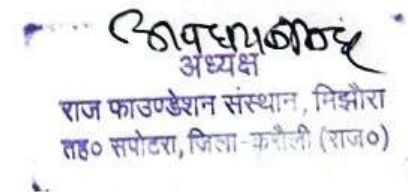 अध्यक्ष
राज फाउण्डेशन संस्थान, मिझौरा
तह० सपोटरा, जिला-करौली (राज०)